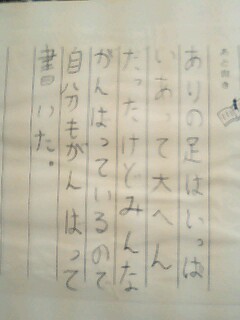 あと書き
ありの足はいっぱ
いあって大へん
だったけどみんな
がんばっているので
自分もがんばって
書いた。